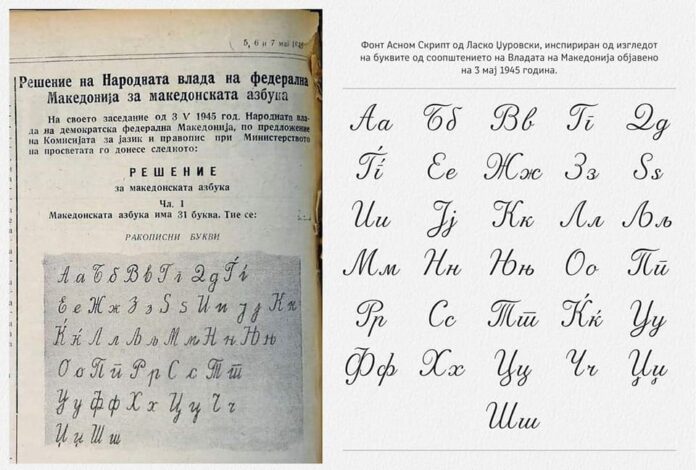 5, 6 и 7 мај 194
Решение на Народната влада на федерална
Македонија за македонската азбука
На своето заседание од 3 V 1945 год. Народната вла-
да на демократска федерална Македонија, по предложение
на Комисијата за јазик и правопис при Министерството
на просветата го донесе следното:
РЕШЕНИЕ
за македонската азбука
Чл. 1
Македонската азбука има 31 буква. Тие се:
РАКОПИСНИ БУКВИ
Аа Бб Вв Гг Дд Ѓѓ
Ее Жж Зз Ѕѕ Ии Јј Кк
Ќќ Лл Љљ Мм Нн Њњ
Оо Пп Рр Сс Тт
Уу Фф Хх Цц Чч
Џџ Шш
Фонт Асном Скрипт од Ласко Џуровски, инспириран од изгледот
на буквите од соопштението на Владата на Македонија објавено
на 3 мај 1945 година.
Аа Бб Вв Гг Дд
Ѓѓ Ее Жж Зз Ѕѕ
Ии Јј Кк Лл Љљ
Мм Нн Њњ Оо Пп
Рр Сс Тт Ќќ Уу
Фф Хх Цц Чч Џџ
Шш